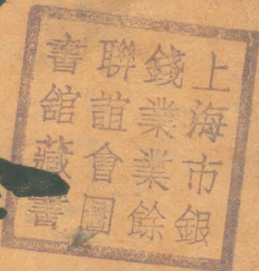 上海市銀
錢業業餘
聯誼會圖
書館藏書